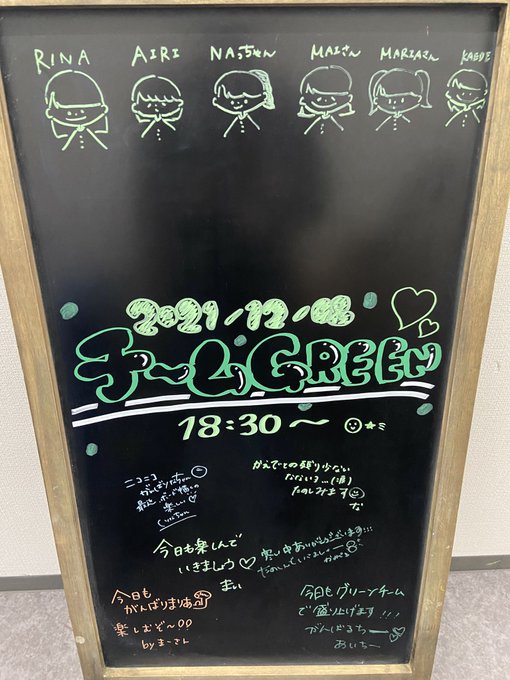 RINA
AIRI
NAっちゃん
MAIさん
MARIAさん
KAEDE
2021/12/08
チームGREEN
18:30〜
ニコニコ
がんばりなちゃん
楽しい♡
かえでーとの残り少ない
(涙)
たのしみます
な
今日も楽しんで
いきましょう♡
まい
寒い中ありがとうございます!!!
かえで
今日も
がんばりまりあ
楽しむぞ〜
byまーさん
今日もグリーンチーム
で盛り上げます!!!
がんばるちー
あいちー